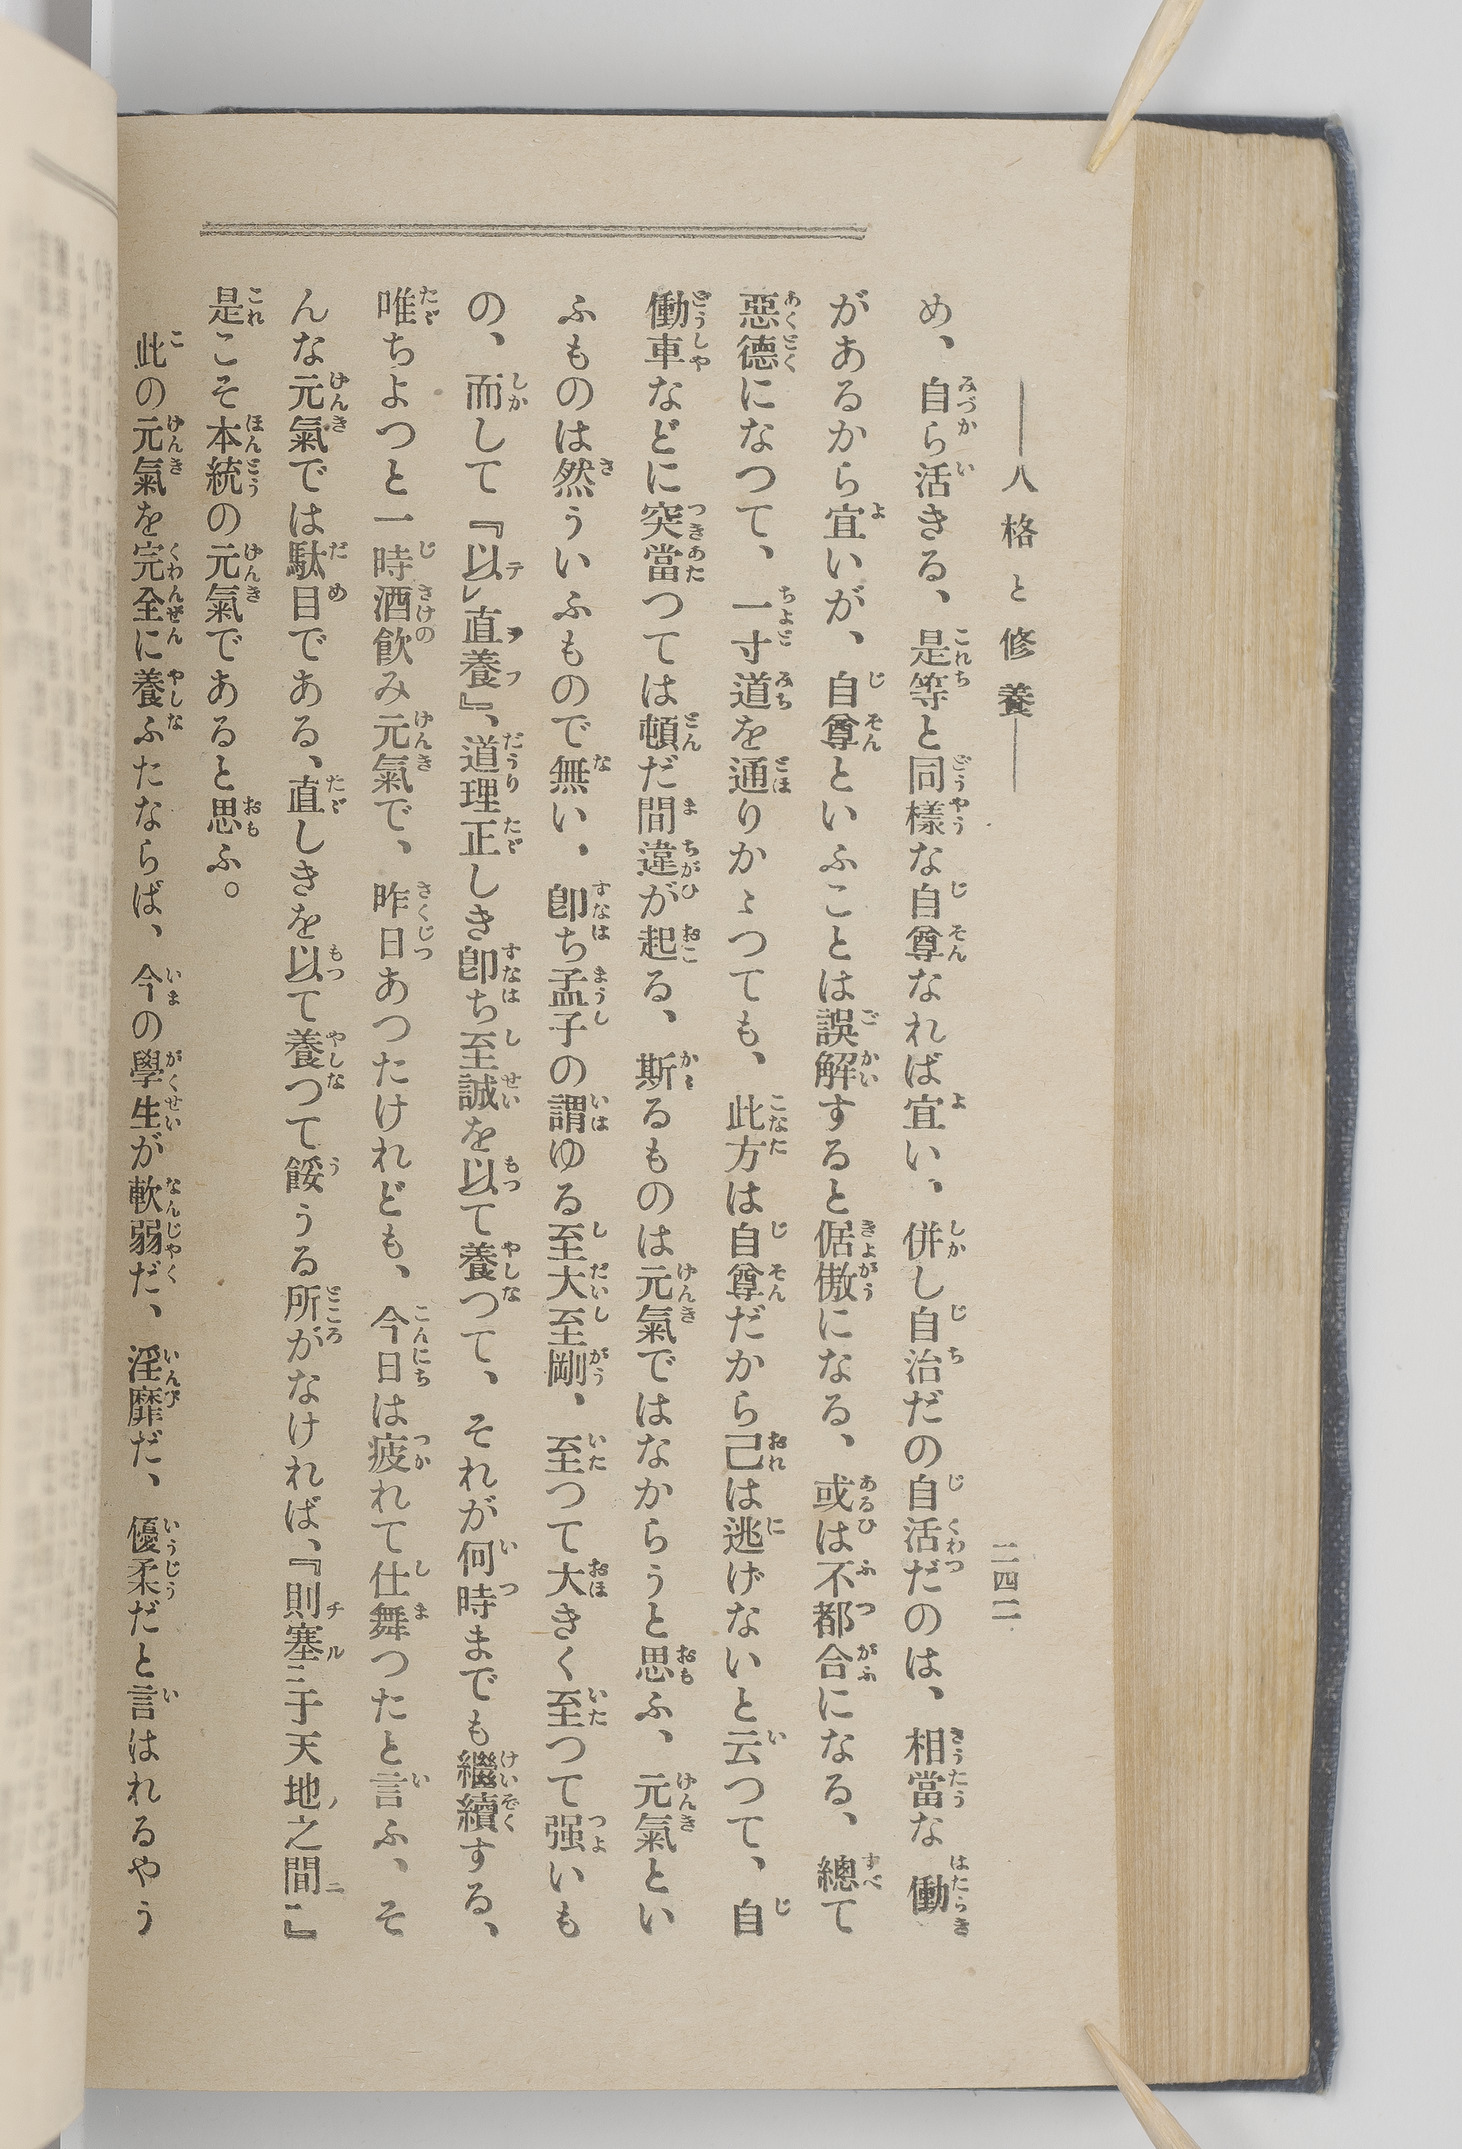 ――人格と修養――
二四二
め、自ら活きる、是等と同樣な自尊なれば宜い、併し自治だの自活だのは、相當な働
があるから宜いが、自尊といふことは誤解すると倨傲になる、或は不都合になる、總て
惡德になつて、一寸道を通りかゝつても、此方は自尊だから己は逃げないと云つて、自
働車などに突當つては頓だ間違が起る、斯るものは元氣ではなからうと思ふ、元氣とい
ふものは然ういふもので無い、卽ち孟子の謂ゆる至大至剛、至つて大きく至つて强いも
の、而して『以テレ直ヲ養フ』、道理正しき卽ち至誠を以て養つて、それが何時までも繼續する、
唯ちよつと一時酒飮み元氣で、昨日あつたけれども、今日は疲れて仕舞つたと言ふ、そ
んな元氣では駄目である、直しきを以て養つて餒うる所がなければ、『則チ塞ル二于天地ノ之間ニ一』
是こそ本統の元氣であると思ふ。
此の元氣を完全に養ふたならば、今の學生が軟弱だ、淫靡だ、優柔だと言はれるやう